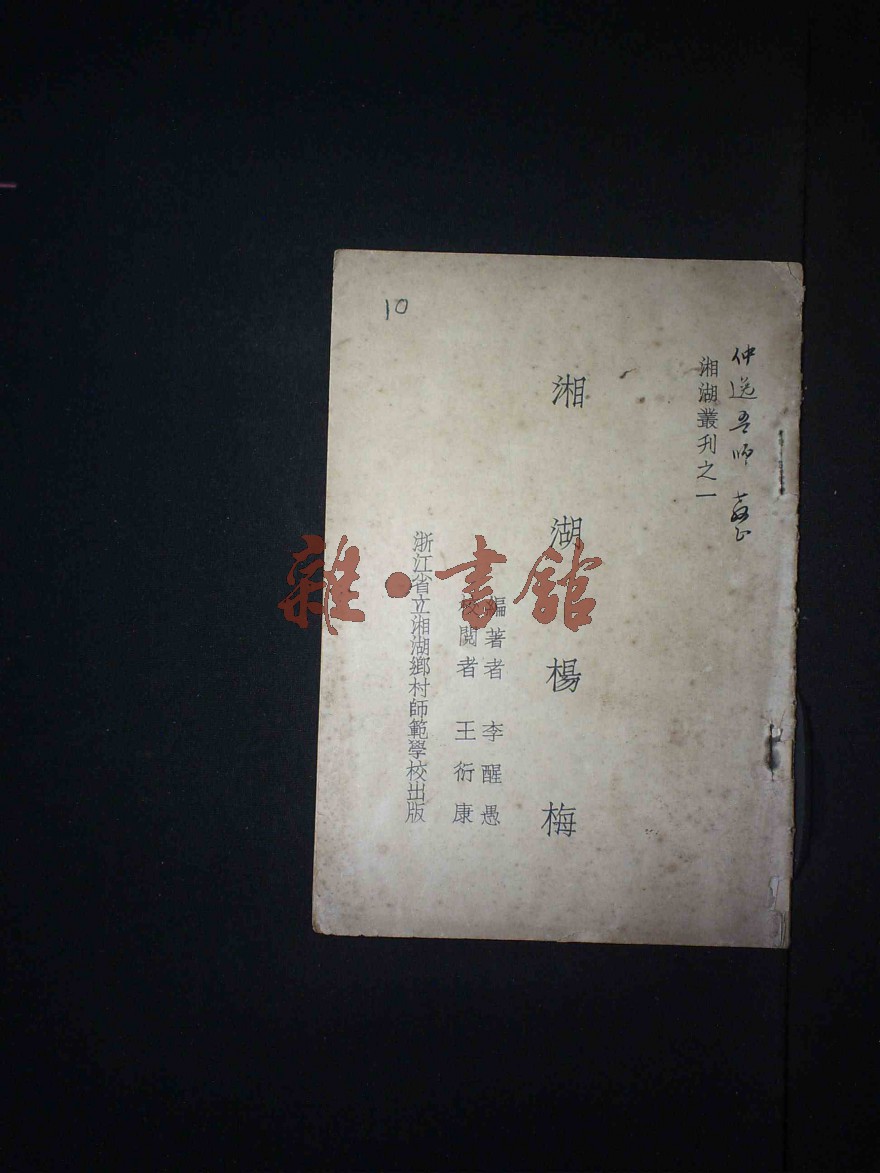 仲逵吾師 教正
湘湖叢刋之一
湘湖楊梅
編著者 李醒愚
校閱者 王衍康
浙江省立湘湖鄉村師範學校出版
10
雜·書館